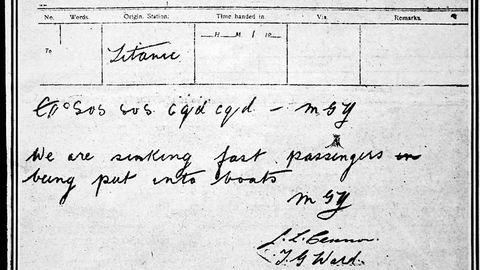 No. Words. Origin. Station. Time handed in. Via. Remarks.
To Titanic H M 19
SOS SOS cqd cqd - MGY
We are sinking fast passengers
being put into boats
MGY
T. G. Ward.